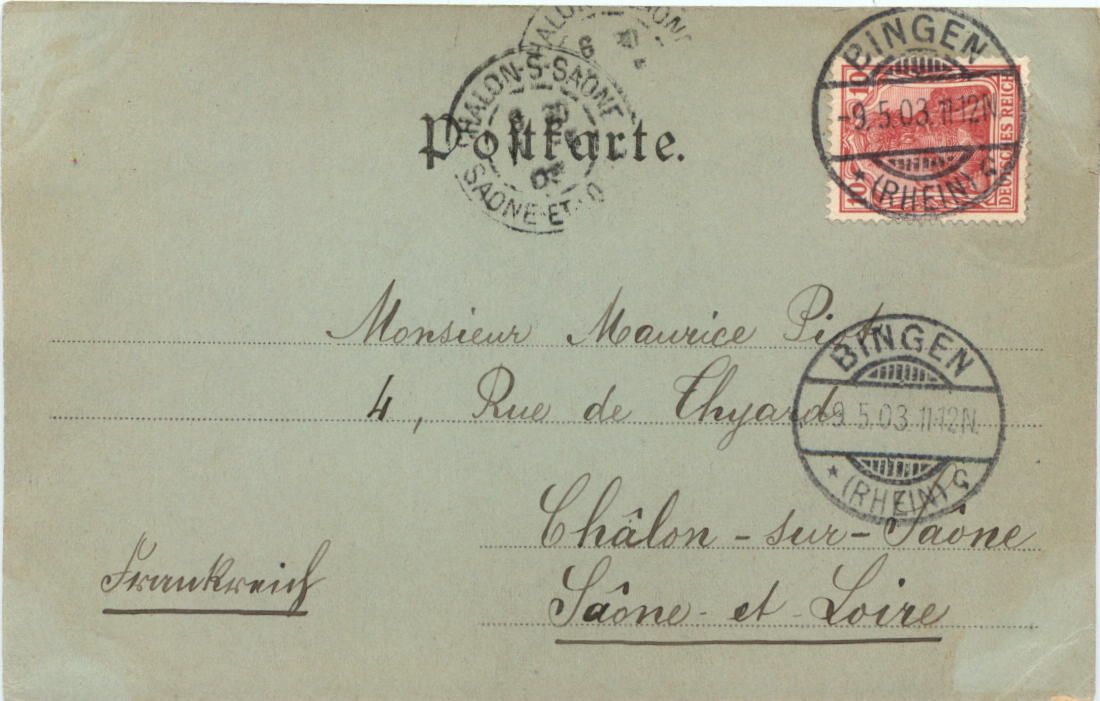 CHALON-S-SAONE
SAONE-ET-
Postkarte.
BINGEN
-9.5.03.11-12N.
* (RHEIN) c
10
10
DEUTSCHES REICH
Monsieur Maurice Piot
4, Rue de Thyard
BINGEN
-9.5.03.11-12N.
* (RHEIN) c
Châlon-sur-Saône
Frankreich
Saône-et-Loire